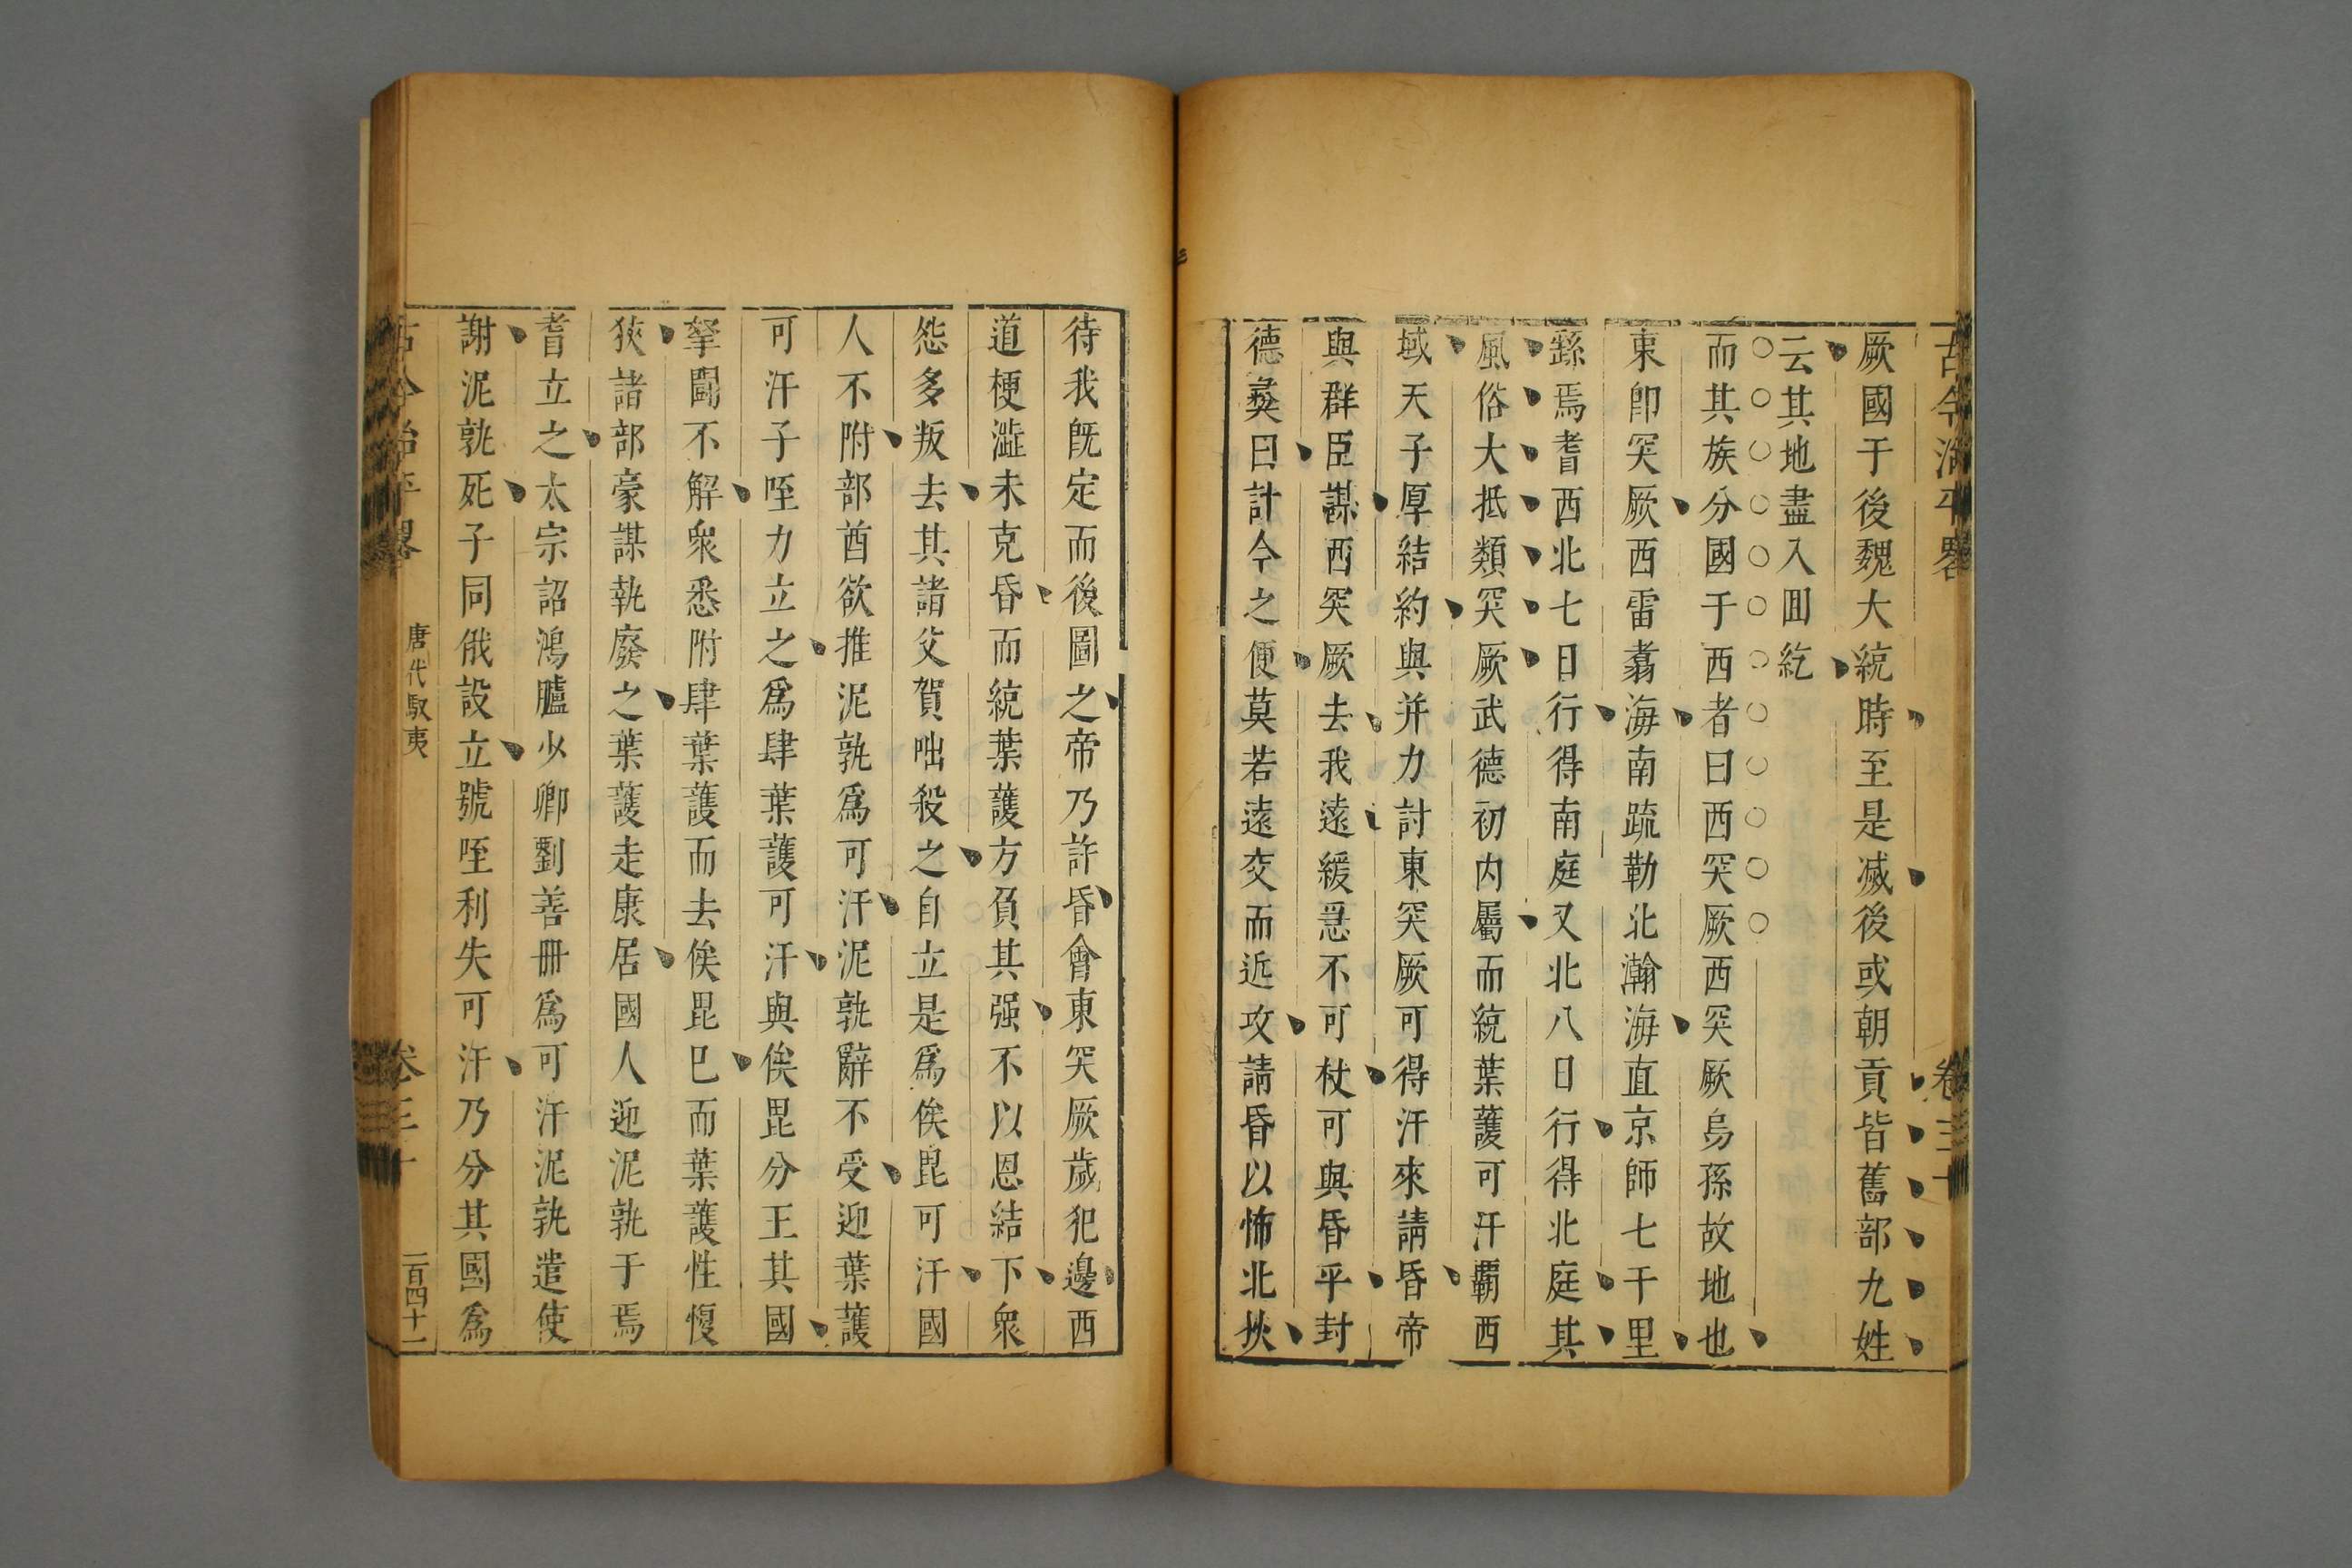 古今治平畧 卷三十
厥國于後魏大統時至是滅後或朝貢皆舊部九姓
云其地盡入回紇
而其族分國于西者曰西突厥西突厥烏孫故地也
東卽突厥西雷翥海南疏勒北瀚海直京師七千里
繇焉耆西北七日行得南庭又北八日行得北庭其
風俗大抵類突厥武德初内屬而統葉護可汗霸西
域天子厚結約與并力討東突厥可得汗來請昏帝
與群臣謀西突厥去我遠緩急不可杖可與昏乎封
德彝曰計今之便莫若遠交而近攻請昏以怖北狄
待我旣定而後圖之帝乃許昏會東突厥歲犯邊西
道梗澁未克昏而統葉護方負其强不以恩結下衆
怨多叛去其諸父賀咄殺之自立是爲俟毘可汗國
人不附部酋欲推泥孰爲可汗泥孰辭不受迎葉護
可汗子咥力立之爲肆葉護可汗與俟毘分王其國
拏鬬不解衆悉附肆葉護而去俟毘巳而葉護性愎
狹諸部豪謀執廢之葉護走康居國人迎泥孰于焉
耆立之太宗詔鴻臚少卿劉善冊爲可汗泥孰遣使
謝泥孰死子同俄設立號咥利失可汗乃分其國爲
古今治平畧 唐代馭夷 卷三十 一百四十一